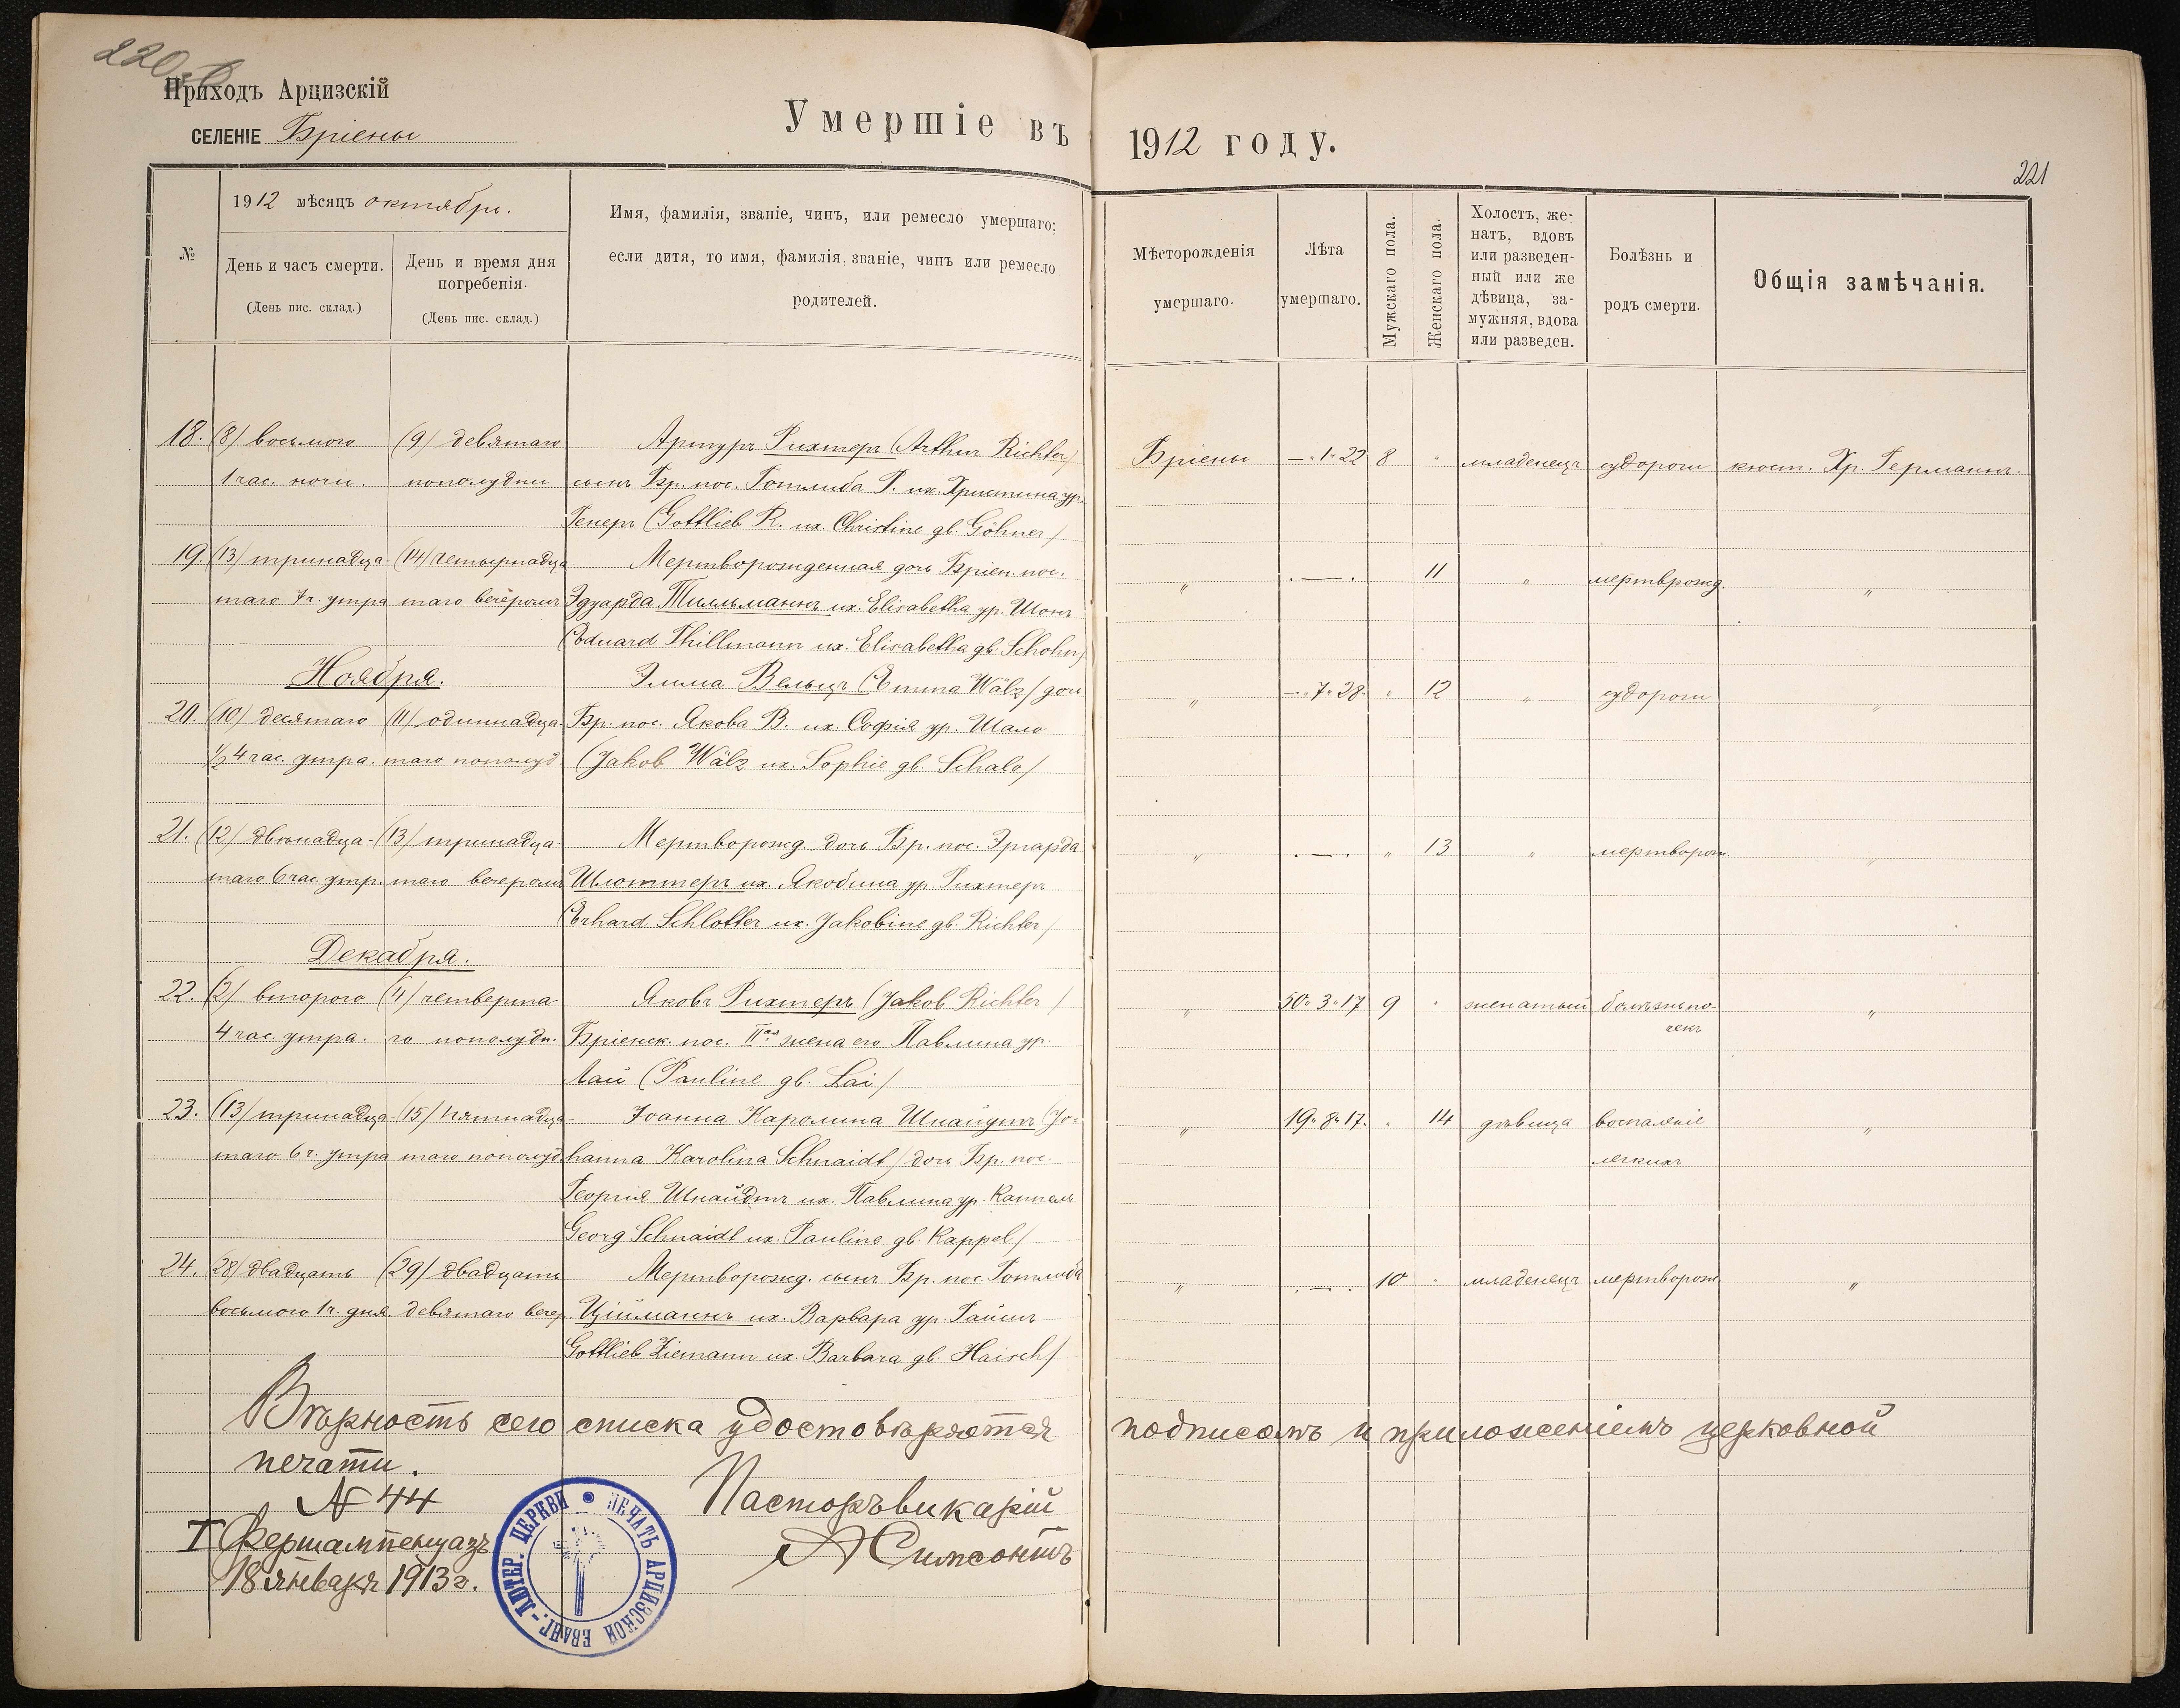 220 об
Приходъ Арцизскій
СЕЛЕНІЕ Бріены
Умершіе въ 1912 году.
221
№
1912 мѣсяцъ октября.
День и часъ смерти.
(День пис. склад.)
День и время дня
погребенія.
(День пис. склад.)
Имя, фамилія, званіе, чинъ, или ремесло умершаго;
если дитя, то имя, фамилія, званіе, чинъ или ремесло
родителей.
Мѣсторожденія
умершаго.
Лѣта
умершаго.
Мужскаго пола.
Женскаго пола.
Холостъ, же-
натъ, вдовъ
или разведен-
ный или же
дѣвица, за-
мужняя, вдова
или разведен.
Болѣзнь и
родъ смерти.
Общія замѣчанія.
18. (8) восьмого (9) девятаго Артуръ Рихтеръ (Arthur Richter) Бріены —„1„22 8 „ младенецъ судороги кюст. Хр. Германнъ.
1 час. ночи. пополудни сынъ Бр. пос. Готлиба Р. их. Христина ур.
Генеръ (Gottlieb R. ux. Christine gb. Göhner)
19. (13) тринадца- (14) четырнадца- Мертворожденная дочь Бріен. пос. „ .—. 11 „ мертврожд. „
таго 7 ч. утра таго вечеромъ Эдуарда Тилльманнъ их. Elisabetha ур. Шонъ
(Eduard Thillmann ux. Elisabetha gb. Schohn)
Ноября.
Эмма Вельцъ (Emma Wälz) дочь „ —„7„28. „ 12 „ судороги „
20. (10) десятаго (11) одиннадца- Бр. пос. Якова В. их. Софія ур. Шало
½ 4 час. утра. таго пополуд. (Jakob Wälz ux. Sophie gb. Schalo)
21. (12) двѣнадца- (13) тринадца- Мертворожд. дочь Бр. пос. Эргарда „ .—. „ 13 „ мертворож. „
таго 6 час. утр. таго вечеромъ Шлоттеръ их. Якобина ур. Рихтеръ
(Erhard Schlotter ux. Jakobine gb. Richter)
Декабря.
22. (2) второго (4) четверта- Яковъ Рихтеръ (Jakob Richter) „ 50„3„17 9 „ женатый болѣзнь по- „
чекъ
4 час. утра. го пополудн. Бріенск. пос. IIая жена его Павлина ур.
Лай (Pauline gb. Lai)
23. (13) тринадца- (15) пятнадца- Іоанна Каролина Шнайдтъ (Jo- „ 19„8„17. „ 14 дѣвица воспаленіе „
таго 6 ч. утра таго пополуд. hanna Karolina Schnaidt) дочь Бр. пос. легкихъ
Георгія Шнайдтъ их. Павлина ур. Каппель
Georg Schnaidt ux. Pauline gb. Kappel)
24. (28) двадцать (29) двадцать Мертворожд. сынъ Бр. пос. Готлиба „ .—. 10 „ младенецъ мертворож. „
восьмого 1 ч. дня. девятаго вечер. Ціиманнъ их. Варвара ур. Гайшъ
Gottlieb Ziemann ux. Barbara gb. Haisch)
Вѣрность сего списка удостовѣряется подписомъ и приложеніемъ церковной
печати.
N 44
Пасторъ викарій
I Фершампенуазъ
А Симсонъ
18 января 1913 г.
ПЕЧАТЬ АРЦИЗСКОЙ ЕВАНГ.-ЛЮТЕР. ЦЕРКВИ